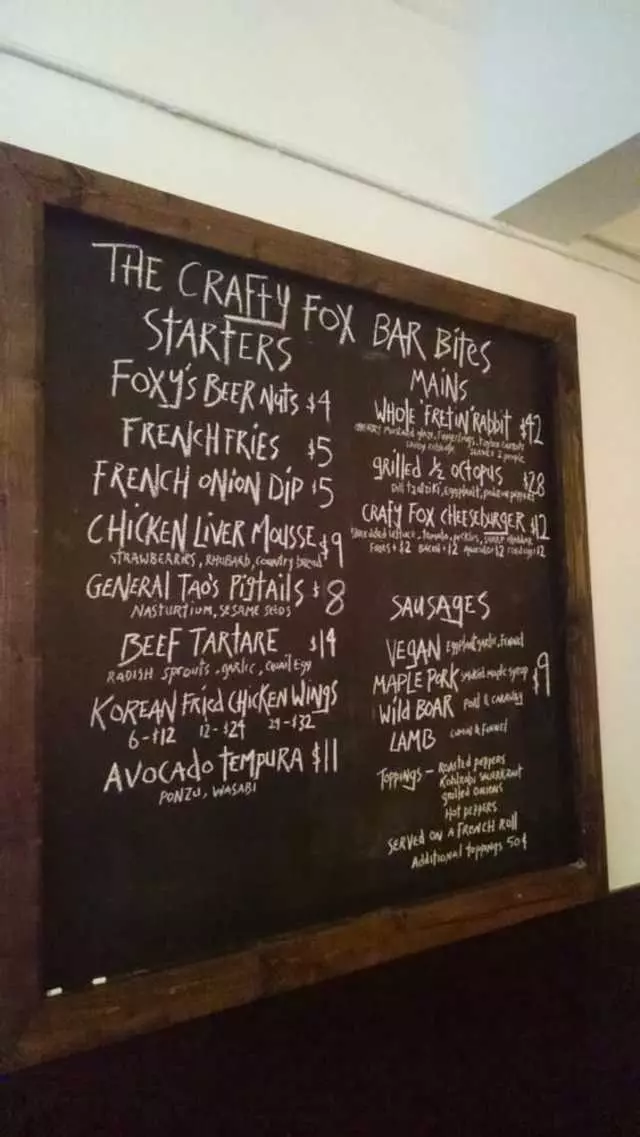 THE CRAFTY FOX BAR BITES
STARTERS
FOXY'S BEER NUTS $4
FRENCH FRIES $5
FRENCH ONION DIP $5
CHICKEN LIVER MOUSSE $9
STRAWBERRIES, RHUBARB, COUNTRY bread
GENERAL TAO'S PIGTAILS $8
NASTURTIUM, SESAME SEEDS
BEEF TARTARE $14
RADISH SPROUTS, GARLIC, QUAIL EGG
KOREAN FRIED CHICKEN WINGS
6-$12 12-$24 24-$32
AVOCADO TEMPURA $11
PONZU, WASABI
MAINS
WHOLE 'FRET'IN' RABBIT $42
mustard glaze, fingerlings,
savoy cabbage SERVES 2 people
grilled ½ octopus $28
Dill tzatziki, eggplant, peppers
CRAFTY FOX CHEESEBURGER $12
shredded lettuce, tomato, pickles, SHARP cheddar
SAUSAGES
VEGAN Eggplant, garlic, fennel
MAPLE PORK smoked maple syrup $9
Wild BOAR & CARAWAY
LAMB cumin & fennel
TOPPINGS - Roasted peppers
Kohlrabi sauerkraut
grilled onions
Hot peppers
SERVED ON A FRENCH ROLL
Additional toppings 50¢